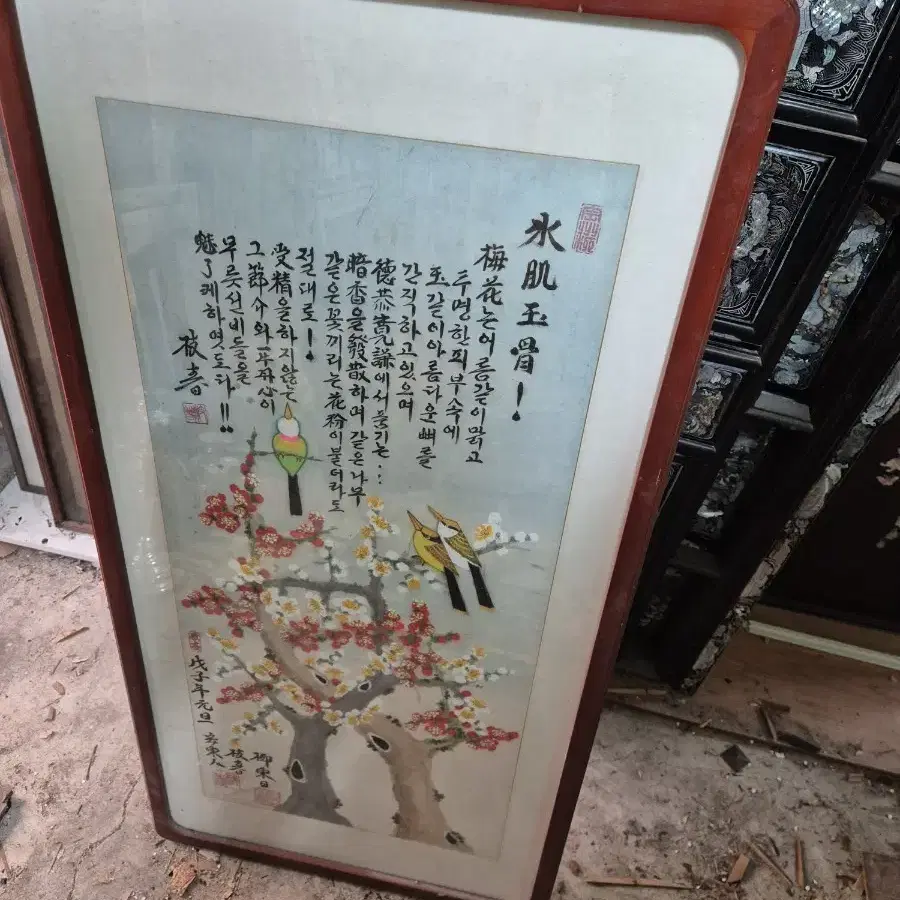 氷肌玉骨!
梅花는어름같이맑고
투명한피부속에
玉같이아름다운뼈를
간직하고있으며
德恭寬謙에서풍기는..
暗香을發散하며같은나무
같은꽃끼리는花粉이붙더라도
절대로!
受精을하지않는
그節介와一片丹心이
무릇선비들을
魅了케하엿도다!!
枝春
戊子年元旦
枝春